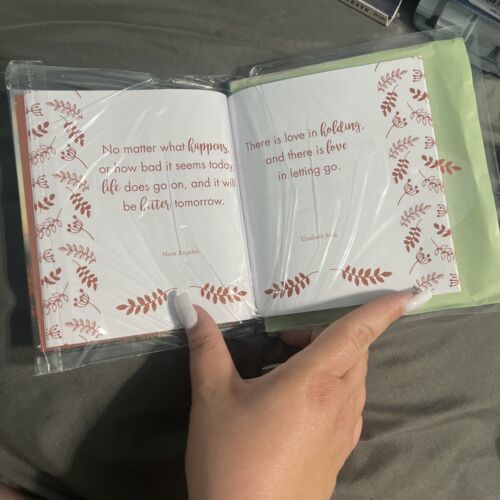 No matter what happens,
or how bad it seems today,
life does go on, and it will
be better tomorrow.
Maya Angelou
There is love in holding,
and there is love
in letting go.
Elizabeth Berg